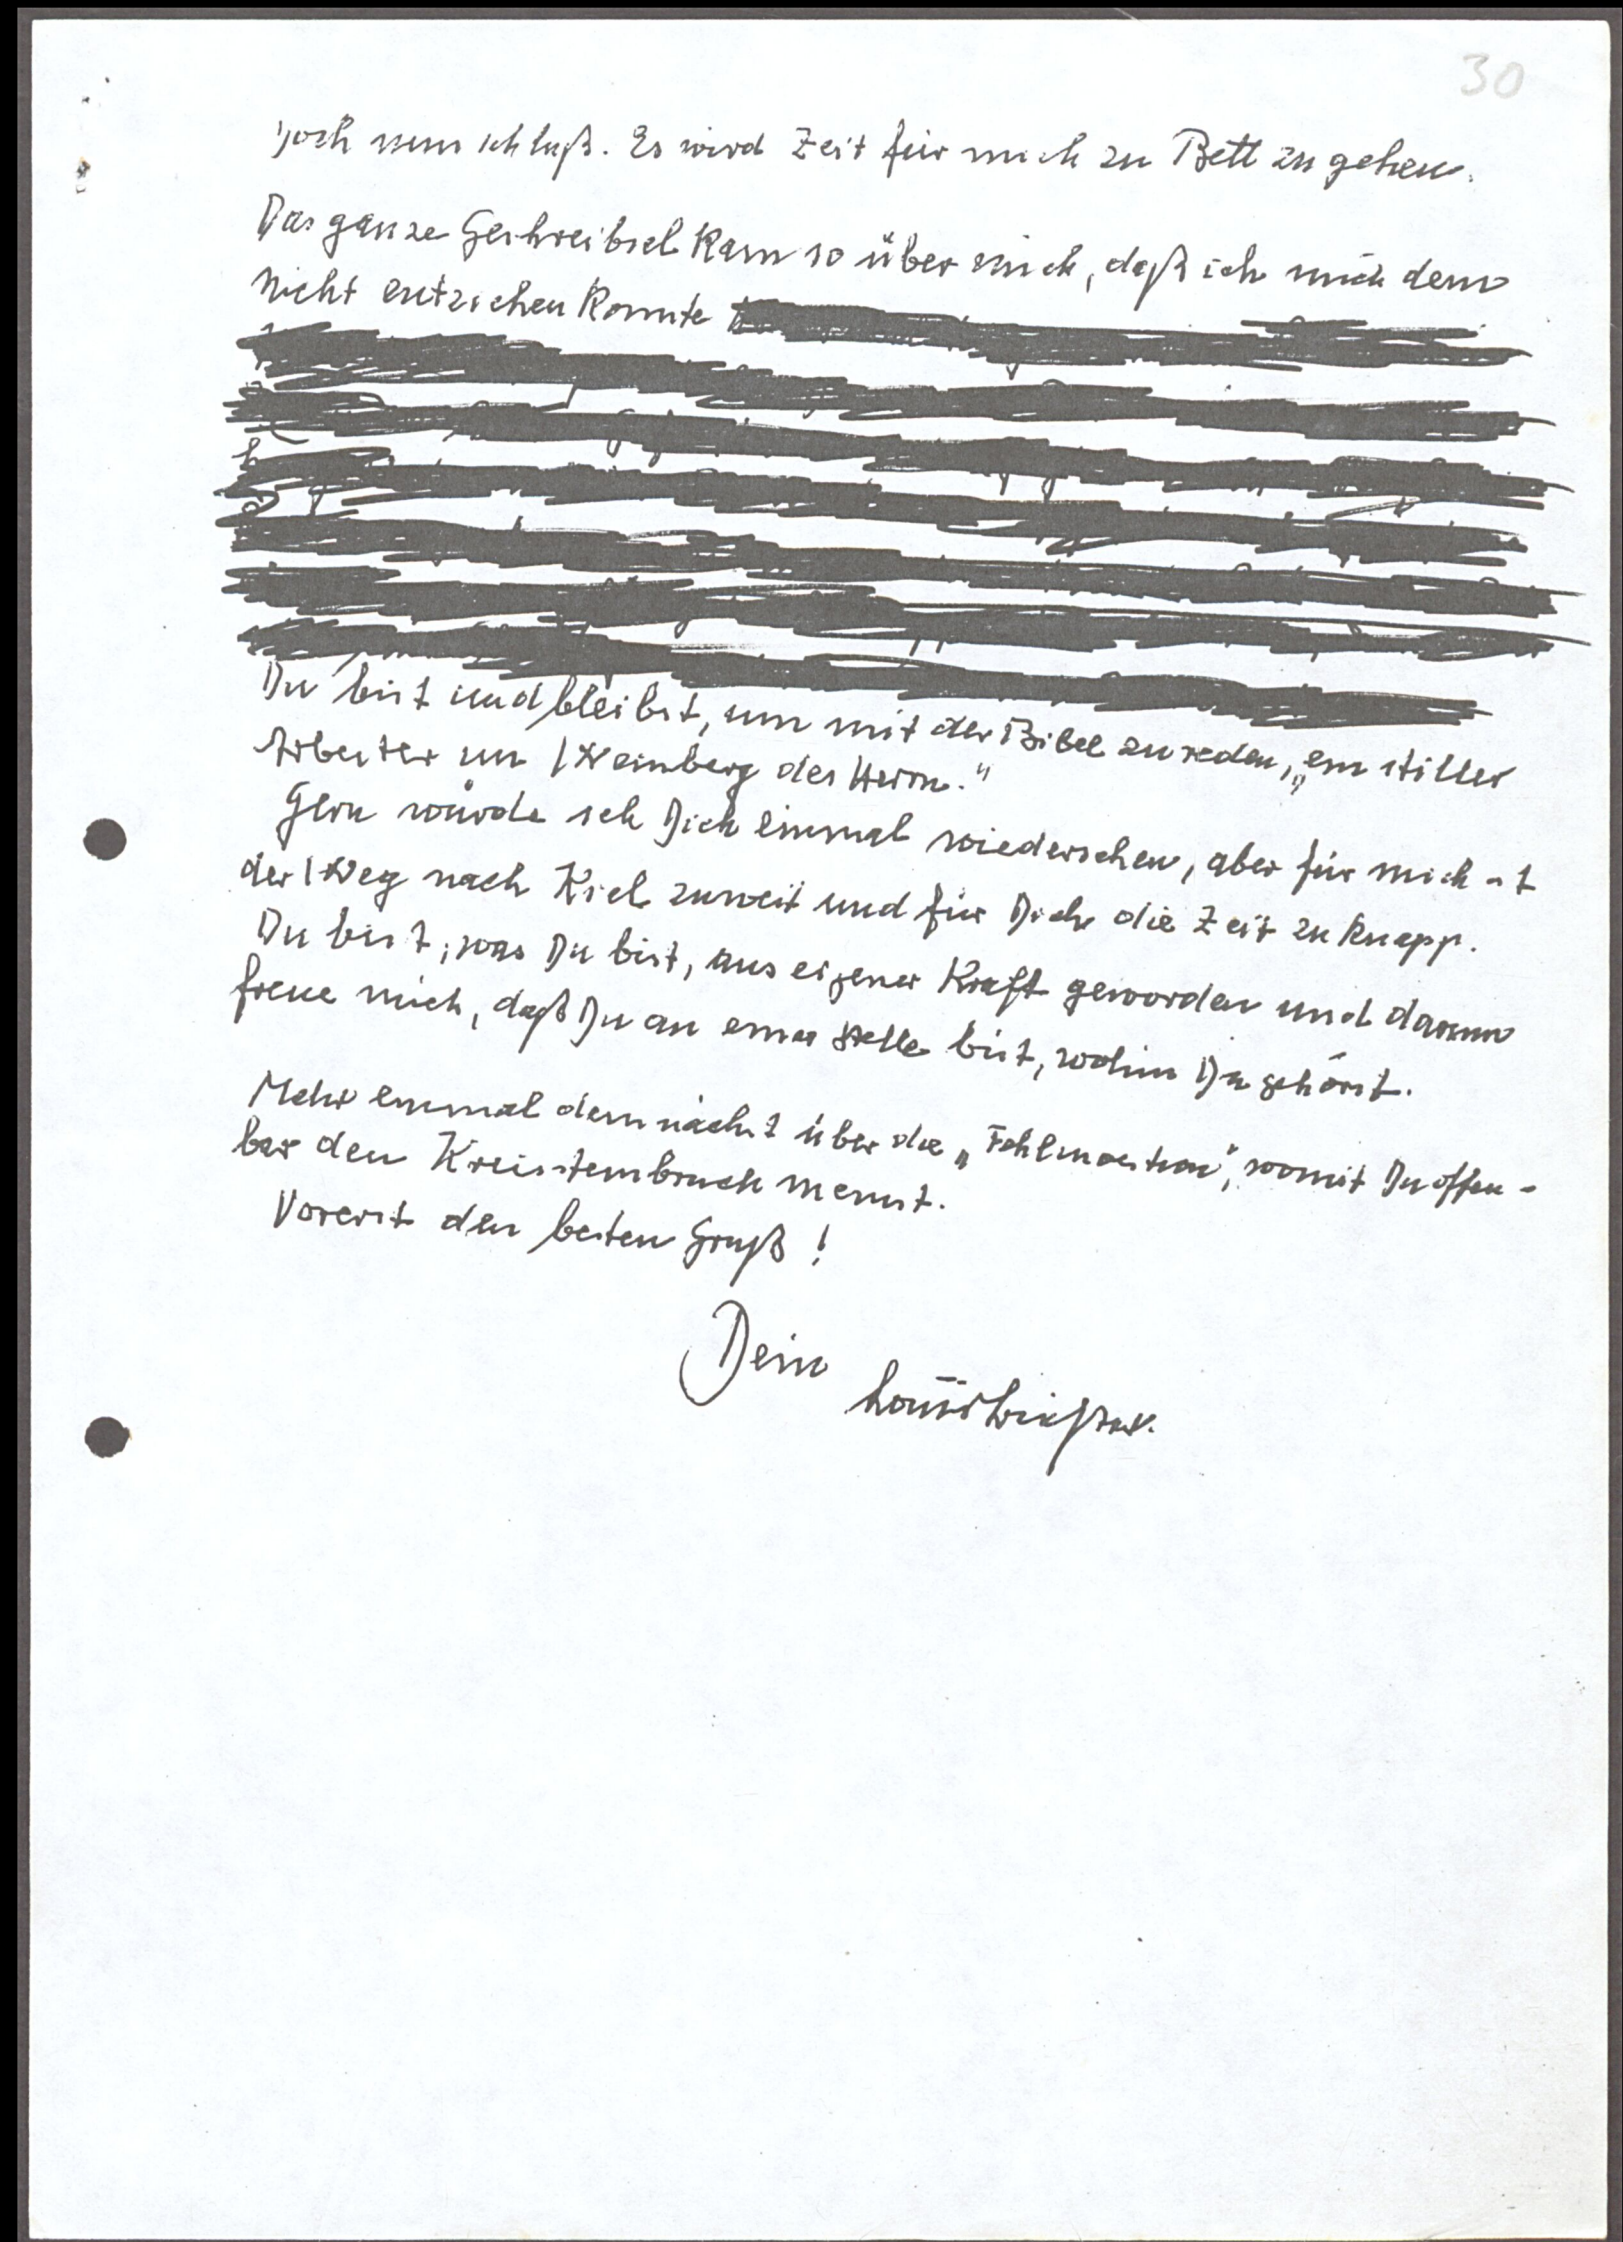 30
Doch nun Schluß. Es wird Zeit für mich zu Bett zu gehen.
Das ganze Geschreibsel kam so über mich, daß ich mich dem
nicht entziehen konnte
Du bist und bleibst, um mit der Bibel zu reden, „ein stiller
Arbeiter im Weinberg des Herrn."
Gern würde ich Dich einmal wiedersehen, aber für mich ist
der Weg nach Kiel zuweit und für Dich die Zeit zu knapp.
Du bist, was Du bist, aus eigener Kraft geworden und darum
freue mich, daß Du an einer Stelle bist, wohin Du gehörst.
Mehr einmal demnächst über die „ womit Du offen-
bar den meinst.
Vorerst den besten Gruß!
Dein